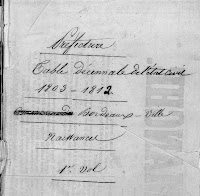 Préfecture
Table décennale de l'état civil
1803 - 1812
Bordeaux - Ville
Naissances
1er Vol